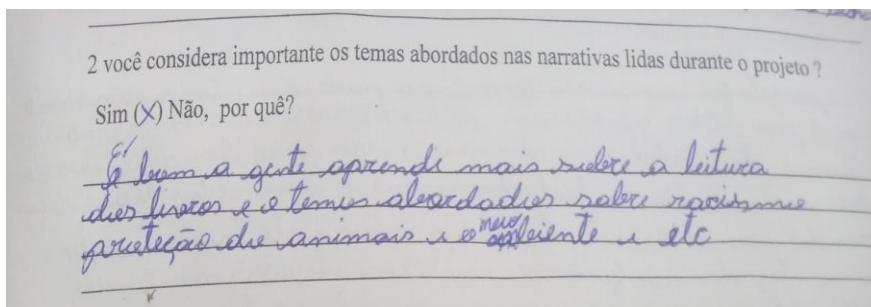 2 você considera importante os temas abordados nas narrativas lidas durante o projeto ?
Sim (X) Não, por quê?
É bom a gente aprende mais sobre a leitura
dos livros e o temas abordados sobre racismo
proteção de animais e o meio ambiente e etc